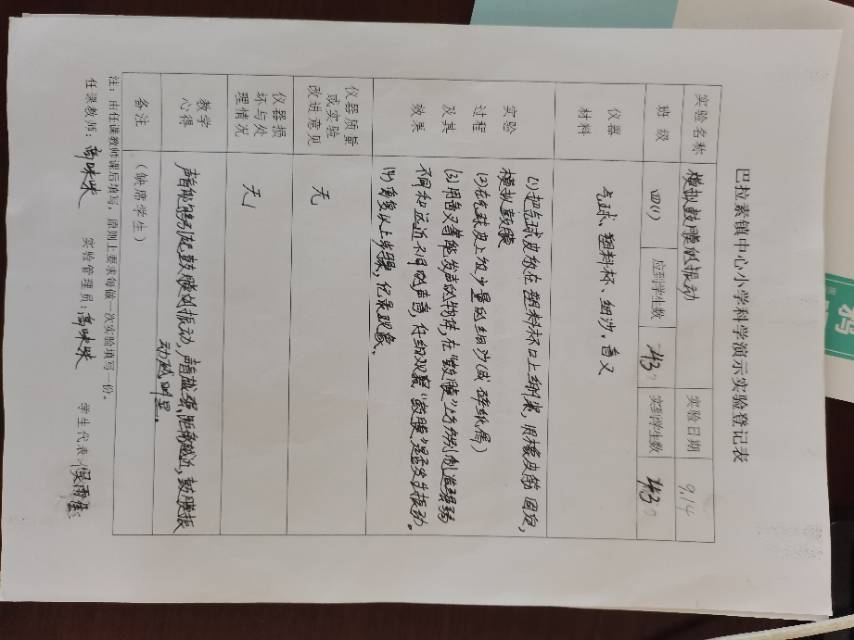 巴拉素镇中心小学科学演示实验登记表
实验名称 模拟鼓膜的振动 实验日期 9.14
班级 四(1) 应到学生数 43 实到学生数 43
仪器材料 气球、塑料杯、细沙、音叉
实验过程及其效果
(1)把气球皮放在塑料杯口上绷紧,用橡皮筋固定,
模拟鼓膜
(2)在气球皮上放少量的细沙(或碎纸屑)
(3)用音叉等能发声的物体,在"鼓膜"上方分别制造强弱
不同和远近不同的声音,仔细观察"鼓膜"是否发生振动。
(4)重复以上步骤,记录现象、
仪器质量或实验改进意见 无
仪器损坏与处理情况 无
教学心得 声音能够引起鼓膜的振动,声音越强,距离越近,鼓膜振
动越明显。
备注 (缺席学生)
注:由任课教师课后填写,原则上要求每做一次实验填写一份。
任课教师: 实验管理员: 学生代表: